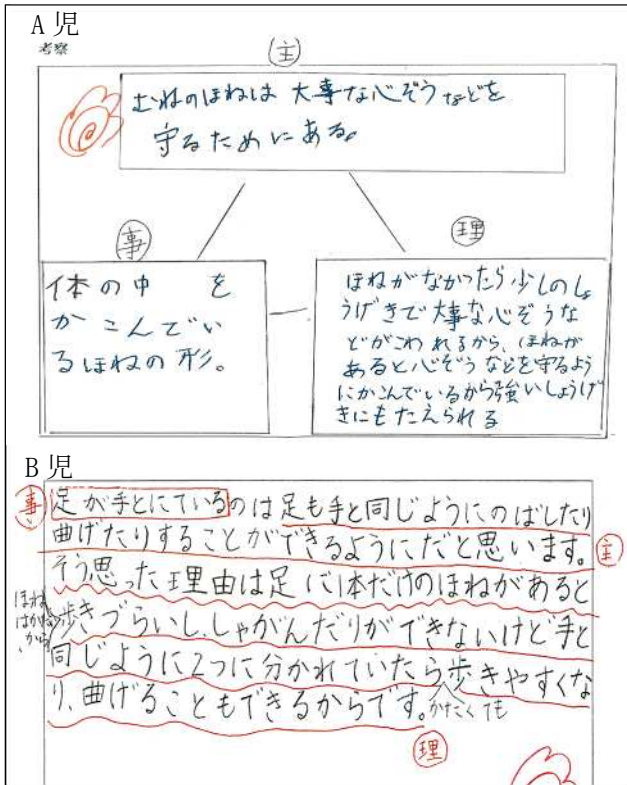 A児
考察
主
むねのほねは 大事な心ぞうなどを
守るためにある。
事
体の中 を
かこんでい
るほねの形。
理
ほねがなかったら少しのしょ
うげきで大事な心ぞうな
どがこわれるから、ほねが
あると心ぞうなどを守るよう
にかこんでいるから強いしょうげ
きにもたえられる
B児
事
足が手とにているのは足も手と同じようにのばしたり
曲げたりすることができるようにだと思います。
主
そう思った理由は足に1本だけのほねがあると
ほね
から
歩きづらいし、しゃがんだりができないけど手と
同じように2つに分かれていたら歩きやすくな
り、曲げることもできるからです。
かたくても
理